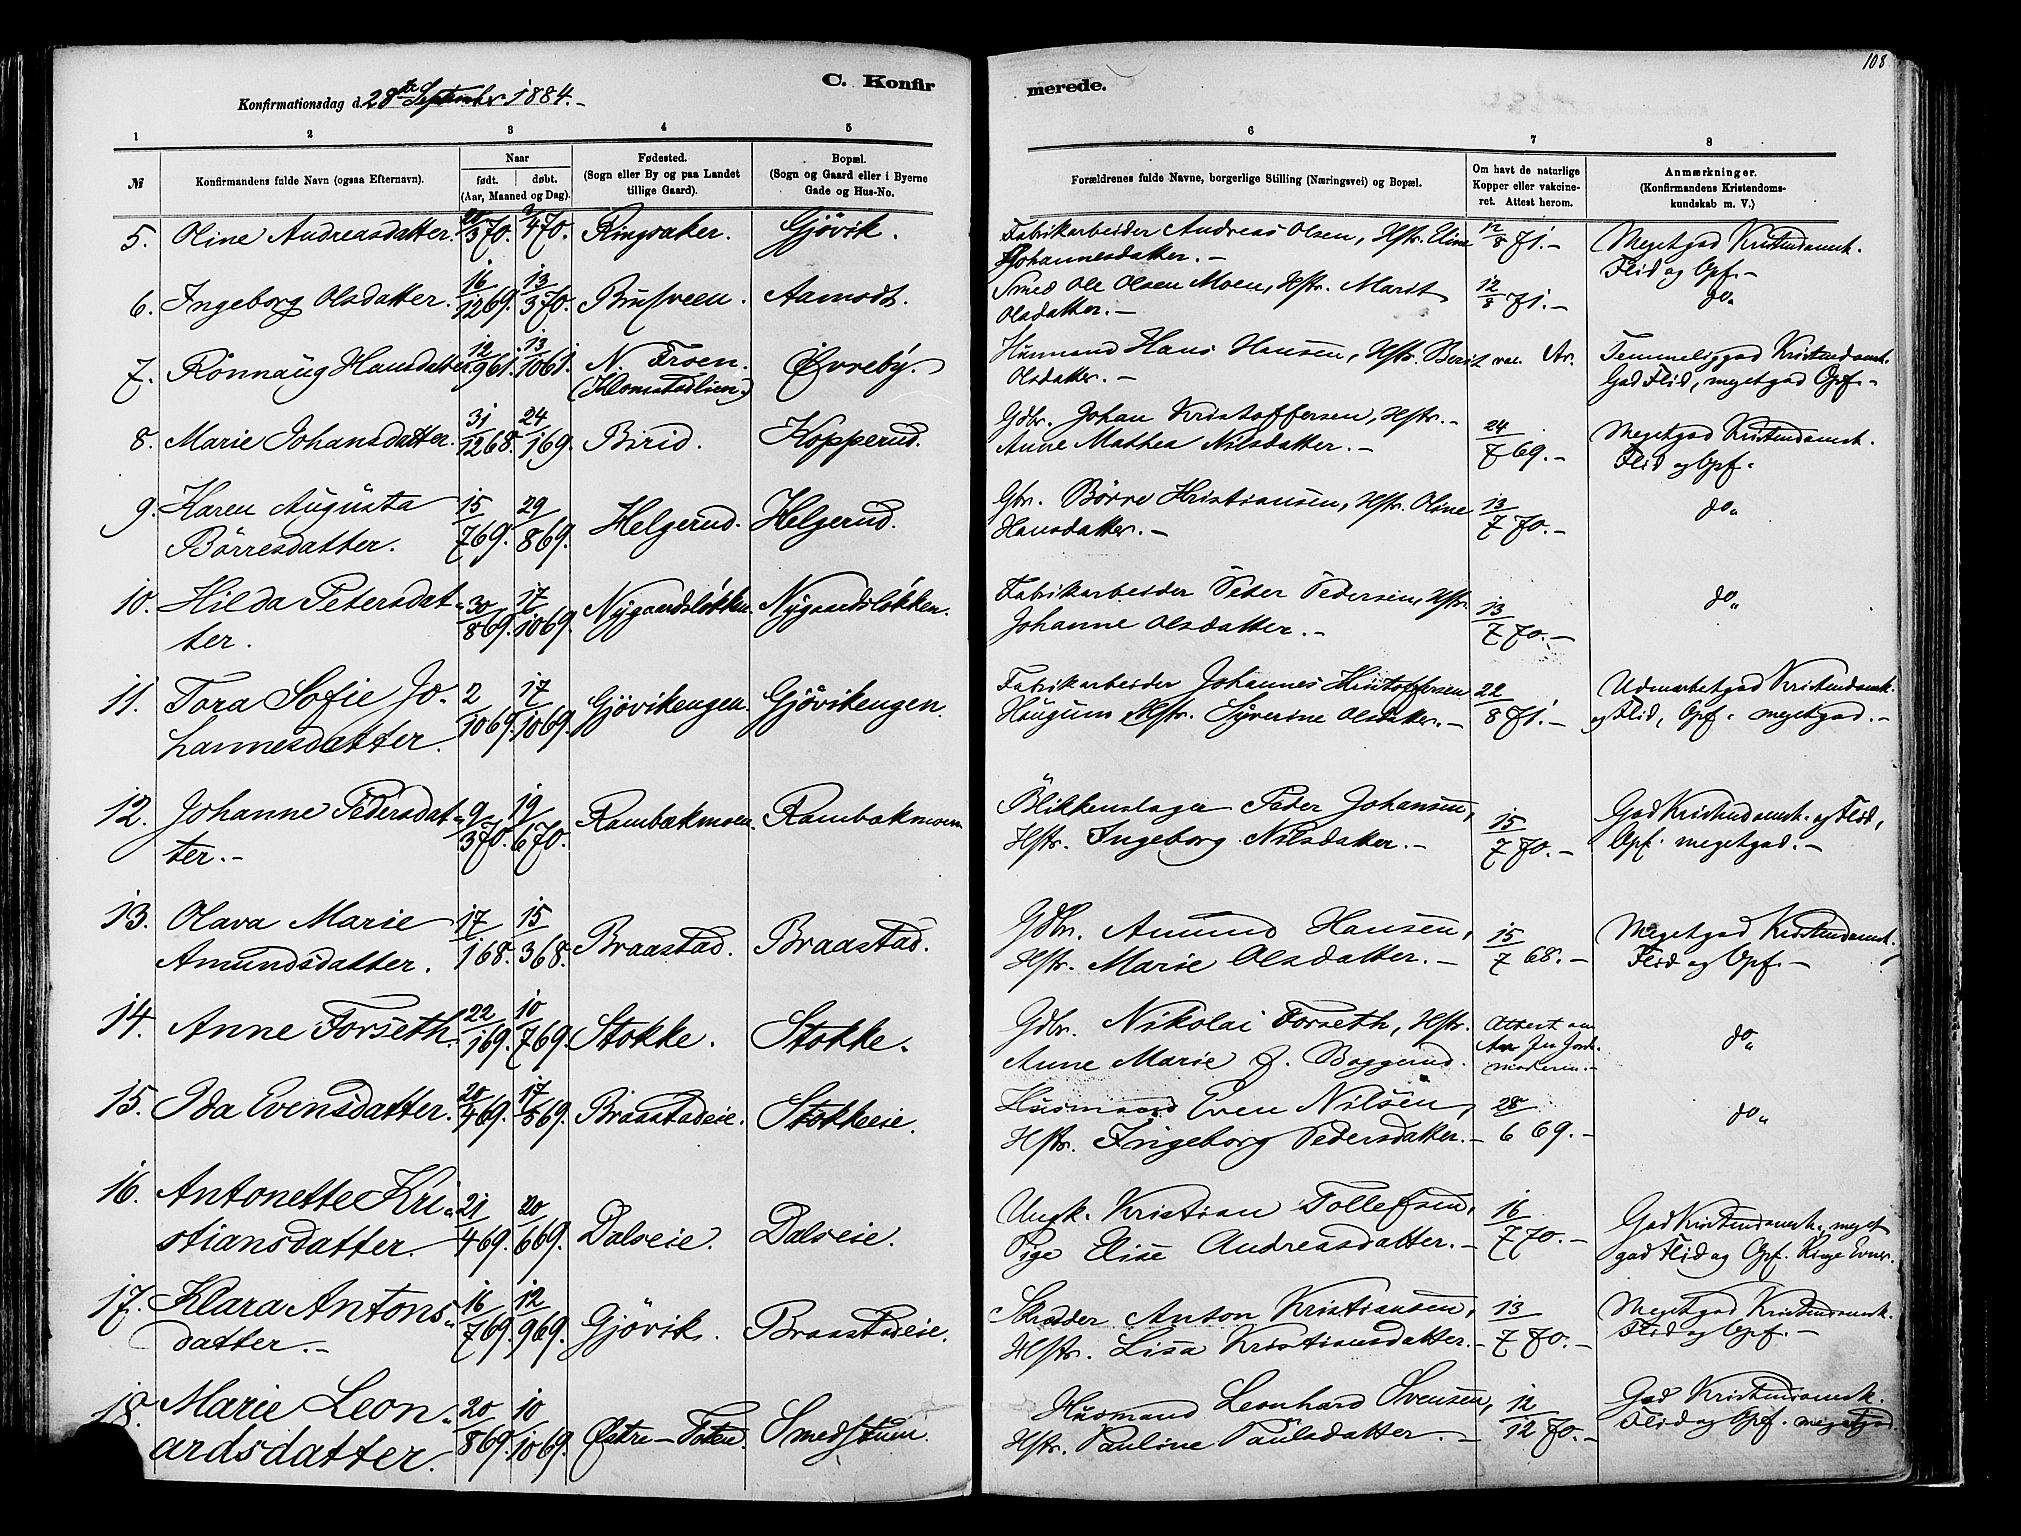 108
C. Konfir
merede.
Konfirmationsdag d. 28de September 1884.-
1 2 3 4 5 6 7 8
№
Konfirmandens fulde Navn (ogsaa Efternavn).
Naar
født. døbt.
(Aar, Maaned og Dag).
Fødested.
(Sogn eller By og paa Landet
tillige Gaard).
Bopæl.
(Sogn og Gaard eller i Byerne
Gade og Hus-No.
Forældrenes fulde Navne, borgerlige Stilling (Næringsvei) og Bopæl.
Om havt de naturlige
Kopper eller vakcine-
ret. Attest herom.
Anmærkninger.
(Konfirmandens Kristendoms-
kundskab m. V.)
5. Oline Andreasdatter. 20/3 70. 2/4 70. Ringsaker. Gjövik.
Fabrikarbeider Andreas Olsen, Hstr. Eline 12/8 71.- Megetgod Kristendomsk.
Johannesdatter.- Flid og Opf.-
6. Ingeborg Olsdatter. 16/12 69. 13/3 70. Brusveen. Aamodt.
Smed Ole Olsen Moen, Hstr. Marit 12/8 71.- do„
Olsdatter.-
7. Rönnaug Hansdatter 12/9 61. 13/10 61. N. Froen. Øvreby.
(Klomstadlien.)
Husmand Hans Hansen, Hstr. Berit vac. Ar. Temmeliggod Kristendomsk.
Olsdatter.- God Flid, megetgod Opf.-
8. Marie Johansdatter. 31/12 68. 24/1 69. Birid. Kopperud.
Gdbr. Johan Kristoffersen, Hstr.- 24/7 69.- Megetgod Kristendomsk.
Anne Mathea Nilsdatter.- Flid og Opf.
9. Karen Augusta 15/7 69. 29/8 69. Helgerud. Helgerud.
Börresdatter.
Gbr. Börre Kristiansen, Hstr. Oline 13/7 70.- do„
Hansdatter.-
10. Hilda Petersdat- 30/8 69. 17/10 69. Nygaardsløkken. Nygaardsløkken.
ter.
Fabrikarbeider Peder Pedersen, Hstr. 13/7 70.- do„
Johanne Olsdatter.-
11. Tora Sofie Jo- 2/10 69. 17/10 69. Gjövikengen. Gjövikengen.
hannesdatter.
Fabrikarbeider Johannes Kristoffersen 22/8 71.- Udmærketgod Kristendomsk.
Haugum Hstr. Syverine Olsdatter.- og Flid, Opf. megetgod.-
12. Johanne Pedersdat- 9/3 70. 19/6 70. Rambækmoen. Rambækmoen
ter.-
Blikkenslager Peder Johansen, 15/7 70.- God Kristendomsk. og Flid,
Hstr. Ingeborg Nilsdatter.- Opf. megetgod.-
13. Olava Marie 17/1 68. 15/3 68. Braastad. Braastad.
Amundsdatter.
Gdbr. Amund Hansen, 15/7 68.- Megetgod Kristendomsk.
Hstr. Marie Olsdatter.- Flid og Opf.-
14. Anne Forseth. 22/1 69. 10/7 69. Stokke. Stokke.
Gdbr. Nikolai Forseth, Hstr. Attest om do„
Anne Marie J. Boggerud. Ar fra Jord-
moderen.-
15. Ida Evensdatter. 20/4 69. 17/5 69. Braastadeie. Stokkeeie.
Husmand Even Nilsen, 28/6 69.- do„
Hstr. Ingeborg Pedersdatter.-
16. Antonette Kri- 21/4 69. 20/6 69. Dalseie. Dalseie.
stiansdatter.
Ungk. Kristian Tollefsen, 16/7 70.- God Kristendomsk. meget
Pige Elise Andreasdatter.- god Flid og Opf. Ringe Evner.
17. Klara Antons- 16/7 69. 12/9 69. Gjövik. Braastadeie.
datter.-
Skræder Anton Kristiansen, 13/7 70.- Megetgod Kristendomsk.
Hstr. Lisa Kristiansdatter.- Flid og Opf.-
18. Marie Leon- 20/8 69. 10/10 69. Østre-Toten. Smedstuen.
ardsdatter.
Husmand Leonhard Svensen, 12/12 70.- God Kristendomsk.
Hstr. Pauline Paulsdatter.- Flid og Opf. megetgod.